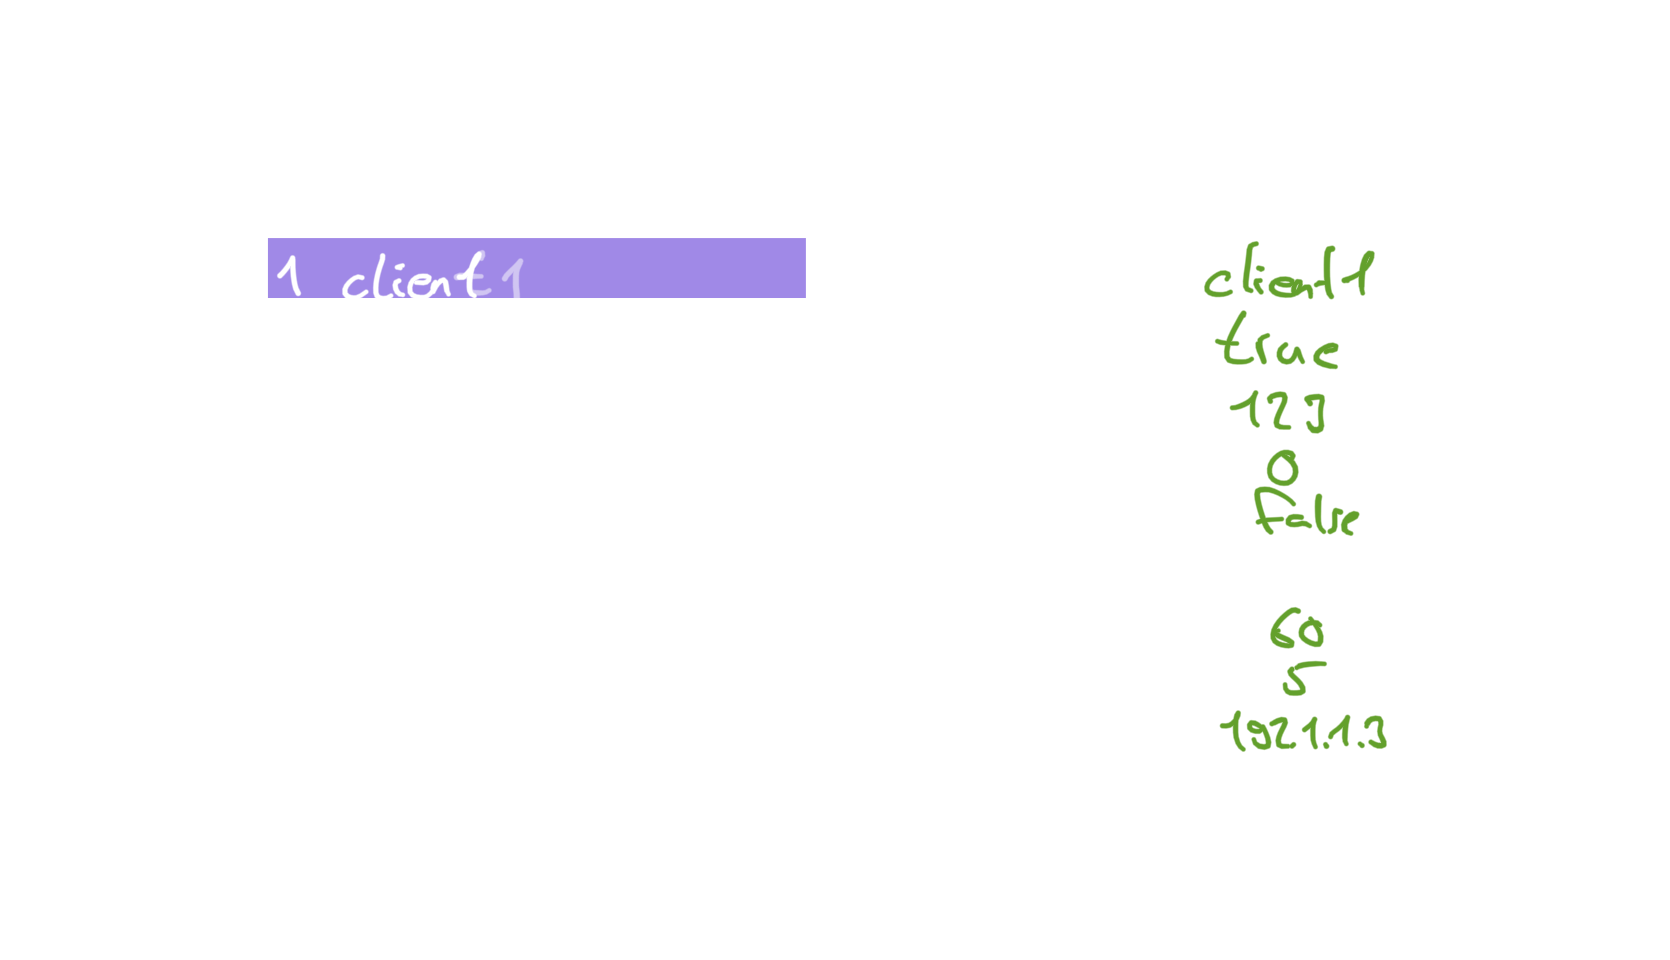 1 client 1
client 1
true
123
0
False
60
5
192.1.1.3